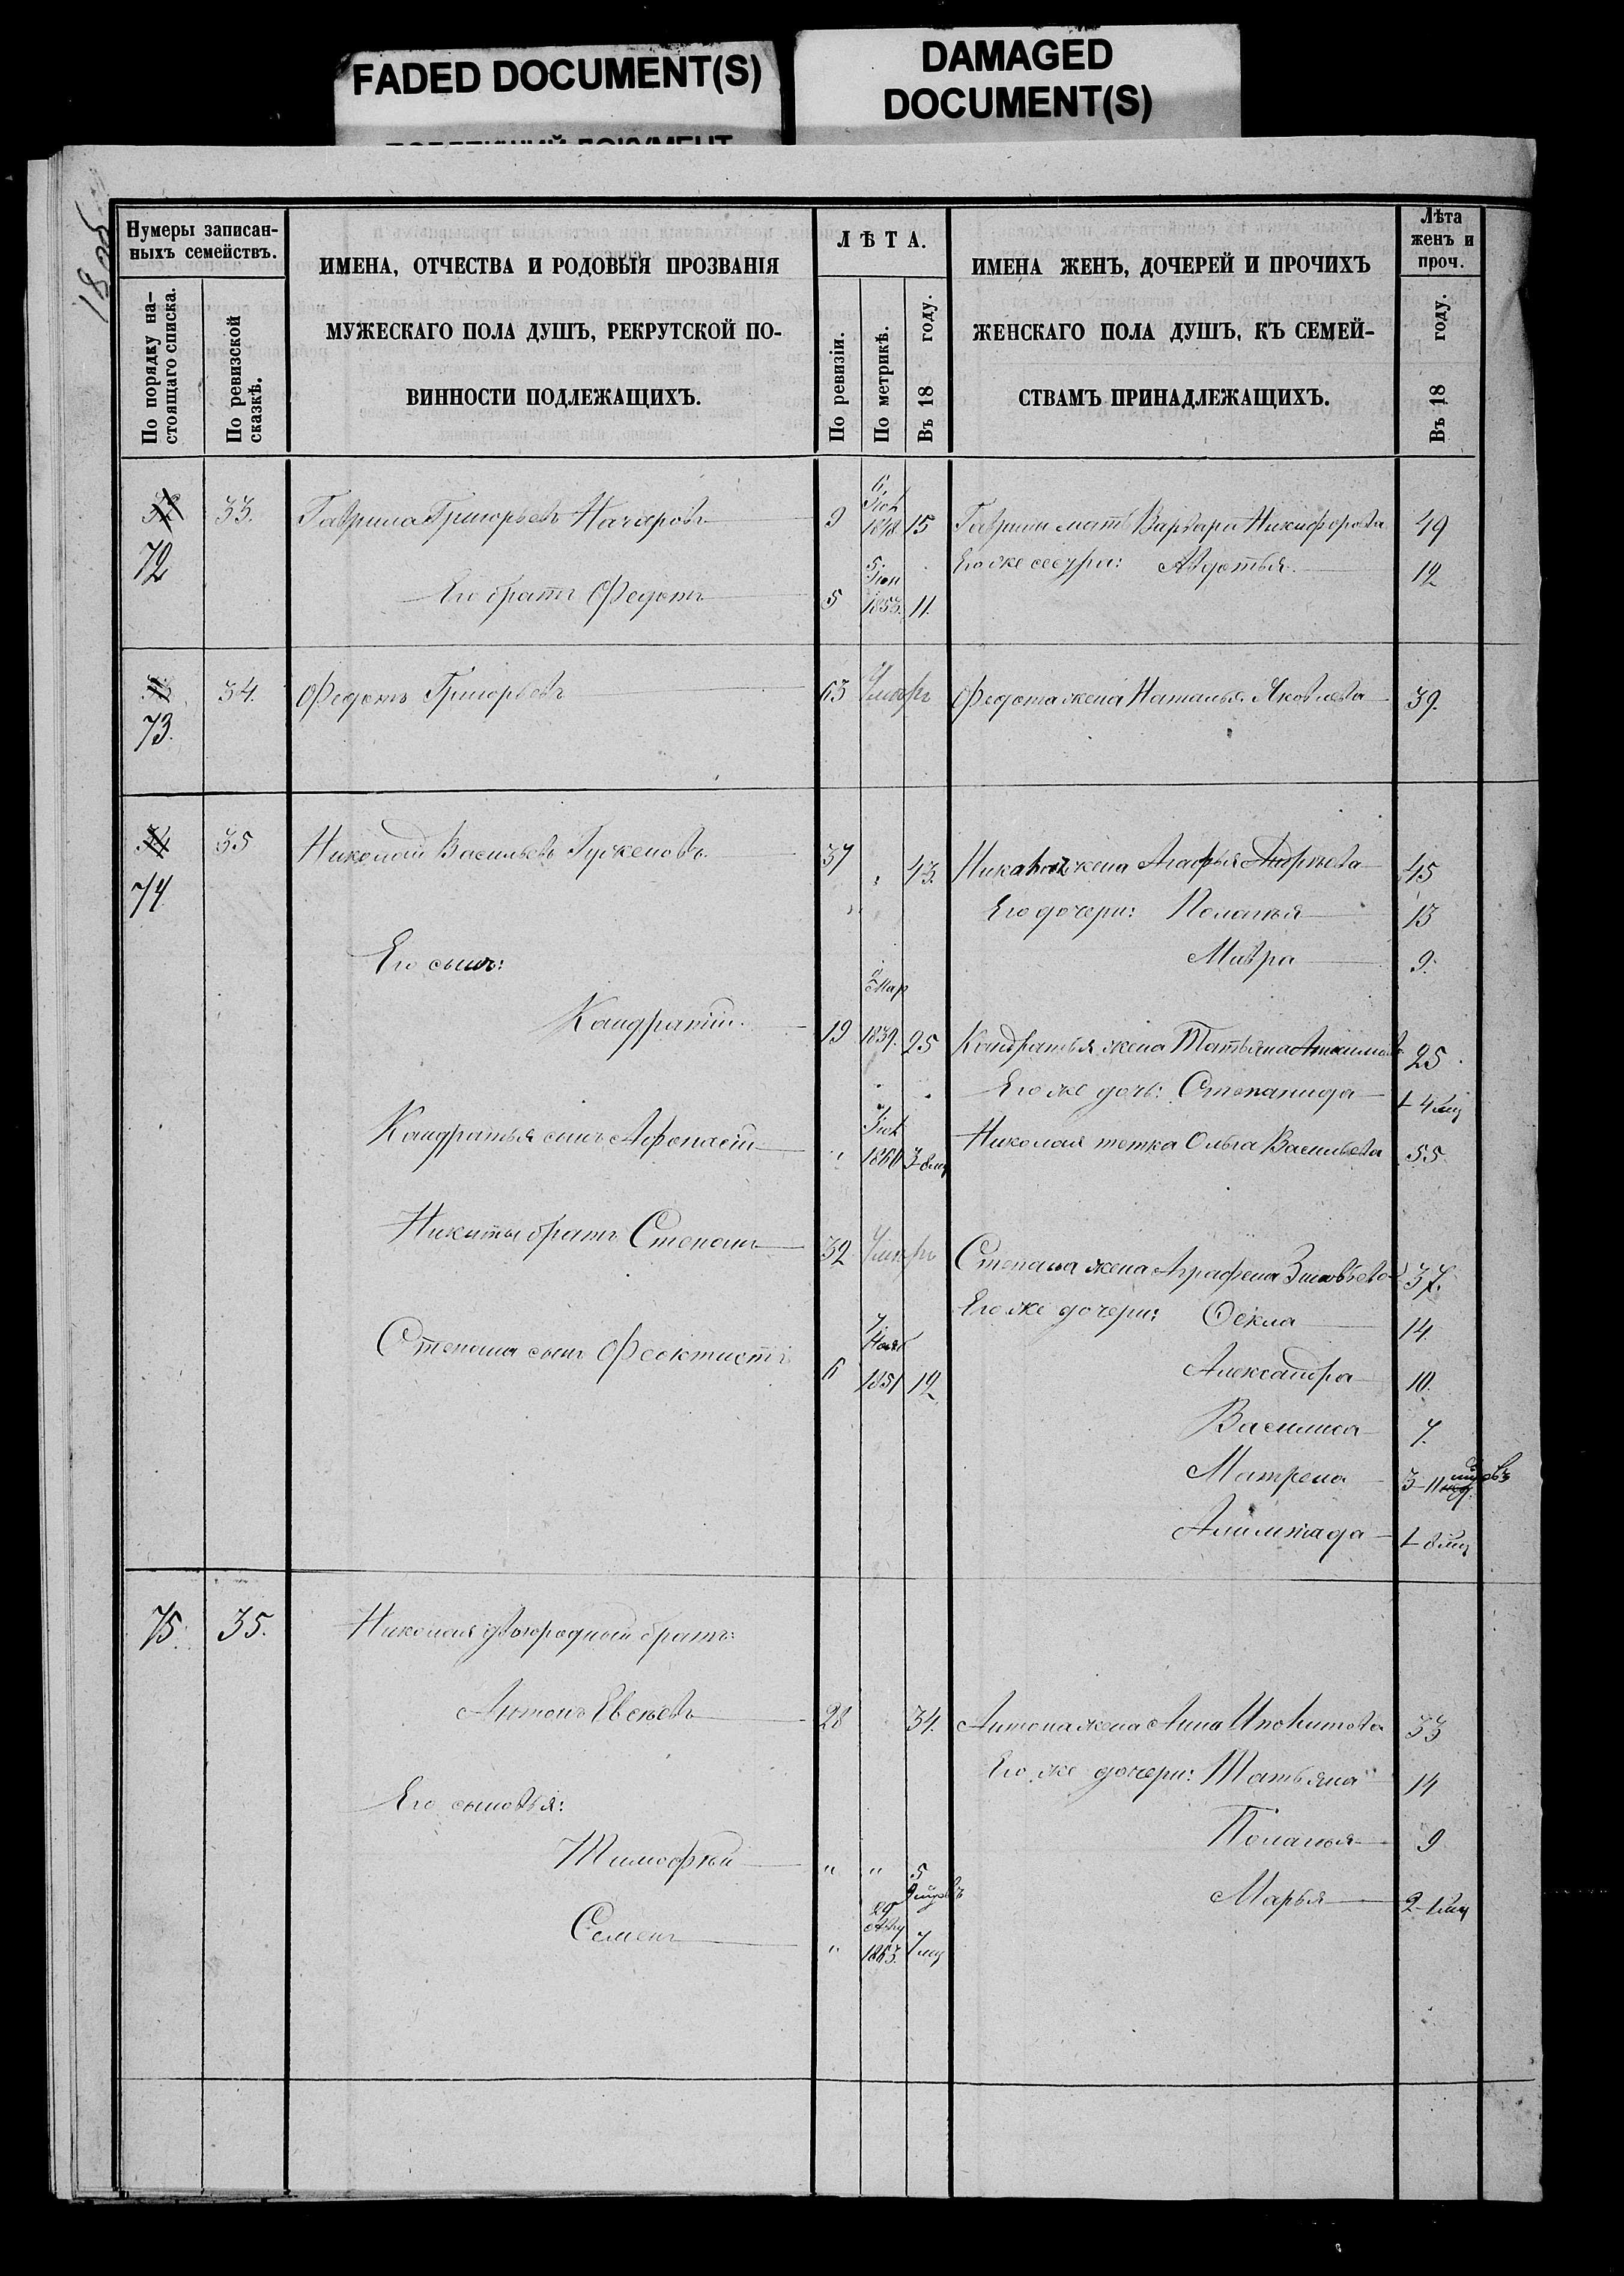 FADED DOCUMENT(S)
DAMAGED
DOCUMENT(S)
Нумеры записан-
ныхъ семействъ.
По порядку на-
стоящаго списка.
По ревизской
сказкѣ.
ИМЕНА, ОТЧЕСТВА И РОДОВЫЯ ПРОЗВАНІЯ
МУЖЕСКАГО ПОЛА ДУШЪ, РЕКРУТСКОЙ ПО-
ВИННОСТИ ПОДЛЕЖАЩИХЪ.
ЛѢТА.
По ревизіи.
По метрикѣ.
Въ 18 году.
ИМЕНА ЖЕНЪ, ДОЧЕРЕЙ И ПРОЧИХЪ
ЖЕНСКАГО ПОЛА ДУШЪ, КЪ СЕМЕЙ-
СТВАМЪ ПРИНАДЛЕЖАЩИХЪ.
Лѣта
женъ и
проч.
Въ 18 году.
33. Гаврила Григорьевъ 9 6 1848 15 Гаврилы мать Варвара Никифорова 49
72 Его же сестра: Авдотья 12
Его братъ Федотъ 5 5 1853. 11.
34. Федотъ Григорьевъ 63 Умеръ Федота жена Наталья Яковлева 39.
73.
35 Николай Васильевъ 37 43. жена Агафья 45
74 Его дочери: Пелагея 13
Его сынъ: Мавра 9.
Мар
Кандратій 19 1839. 25 Кандратья жена Татьяна 25
Его же дочь: Степанида 4 мц
Кандратья сынъ Афонасій " 1860 3-8 мц Николая тетка Ольга Васильева 55.
Никиты братъ Степанъ 32 Умеръ Степана жена Аграфена 37.
Его же дочери: Фекла 14.
Степана сынъ Феоктистъ 6 7 Нояб 1851 12 Александра 10.
Василиса 7.
Матрена 3-11
8 мц
75. 35. Николая двоюродный братъ:
Антонъ Евсѣевъ 28 34. Антона жена Анна 33
Его же дочери: Татьяна 14
Его сыновья: Пелагея 9
Тимофѣй " " 5 Марья 2-
Семенъ " 29 Авгу 1863. 7 мц